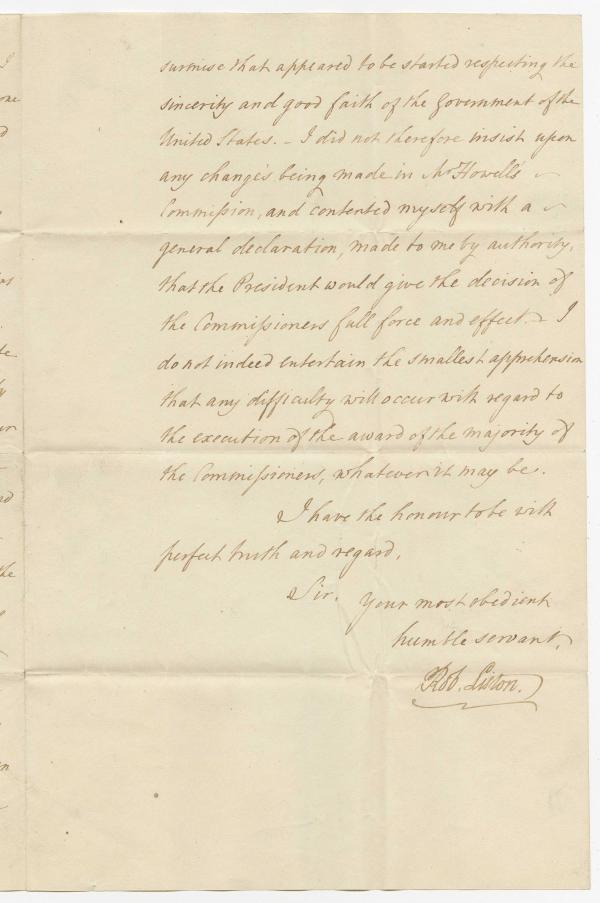 surmise that appeared to be started respecting the
sincerity and good faith of the Government of the
United States. – I did not therefore insist upon
any changes being made in Mr Howell's
Commission, and contented myself with a
general declaration, made to me by authority,
that the President would give the decision of
the Commissioners full force and effect. – I
do not indeed entertain the smallest apprehension
that any difficulty will occur with regard to
the execution of the award of the majority of
the Commissioners, whatever it may be.
I have the honour to be with
perfect truth and regard,
Sir,
Your most obedient
humble servant,
Rob. Liston.